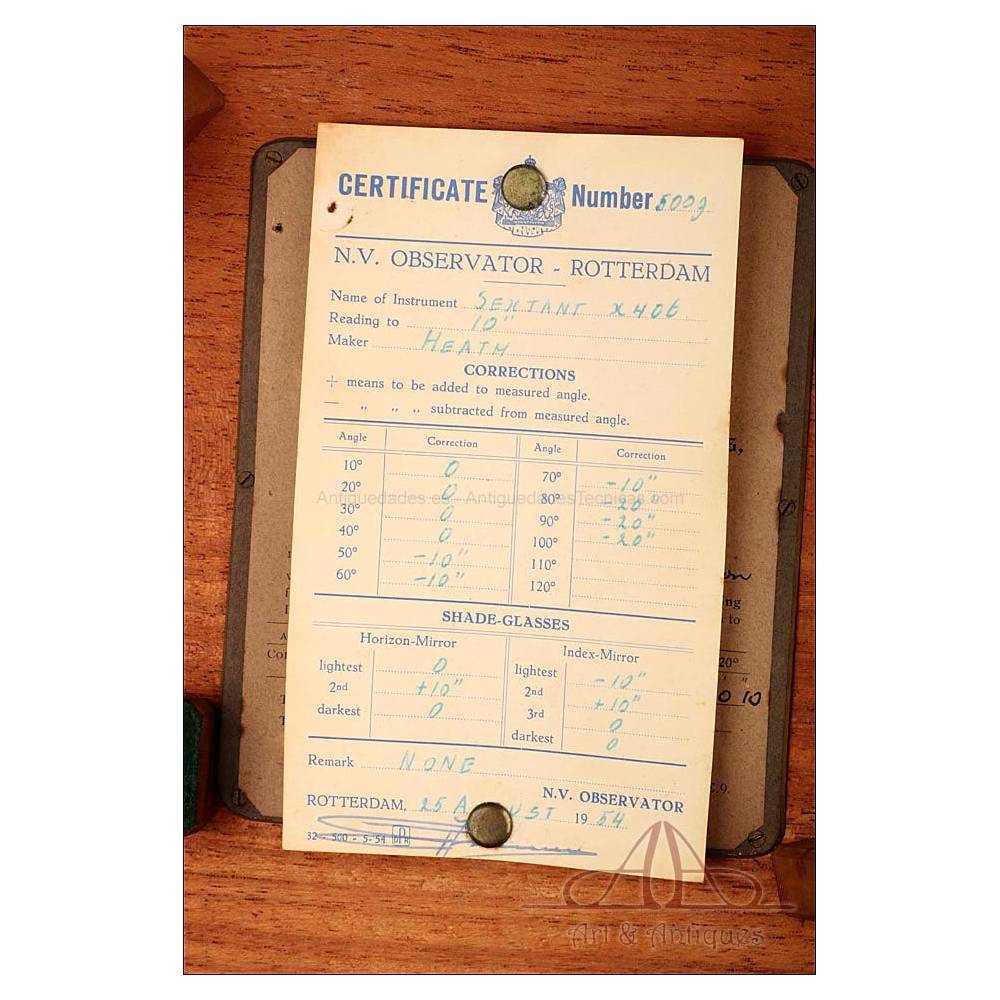 CERTIFICATE Number 5003
N.V. OBSERVATOR - ROTTERDAM
Name of Instrument SEXTANT X406
Reading to 10"
Maker HEATH
CORRECTIONS
+ means to be added to measured angle.
— " " " subtracted from measured angle.
Angle Correction Angle Correction
10° 0 70° -10"
20° 0 80° -20"
30° 0 90° -20"
40° 0 100° -20"
50° -10" 110°
60° -10" 120°
SHADE-GLASSES
Horizon-Mirror Index-Mirror
lightest 0 lightest -10"
2nd +10" 2nd +10"
darkest 0 3rd 0
darkest 0
Remark NONE
N.V. OBSERVATOR
ROTTERDAM, 25 A UST 1954
32 - 500 - 5-54
Antiguedades.es - AntiguedadesTecnicas.com
Art & Antiques
ng
to
20°
0 10